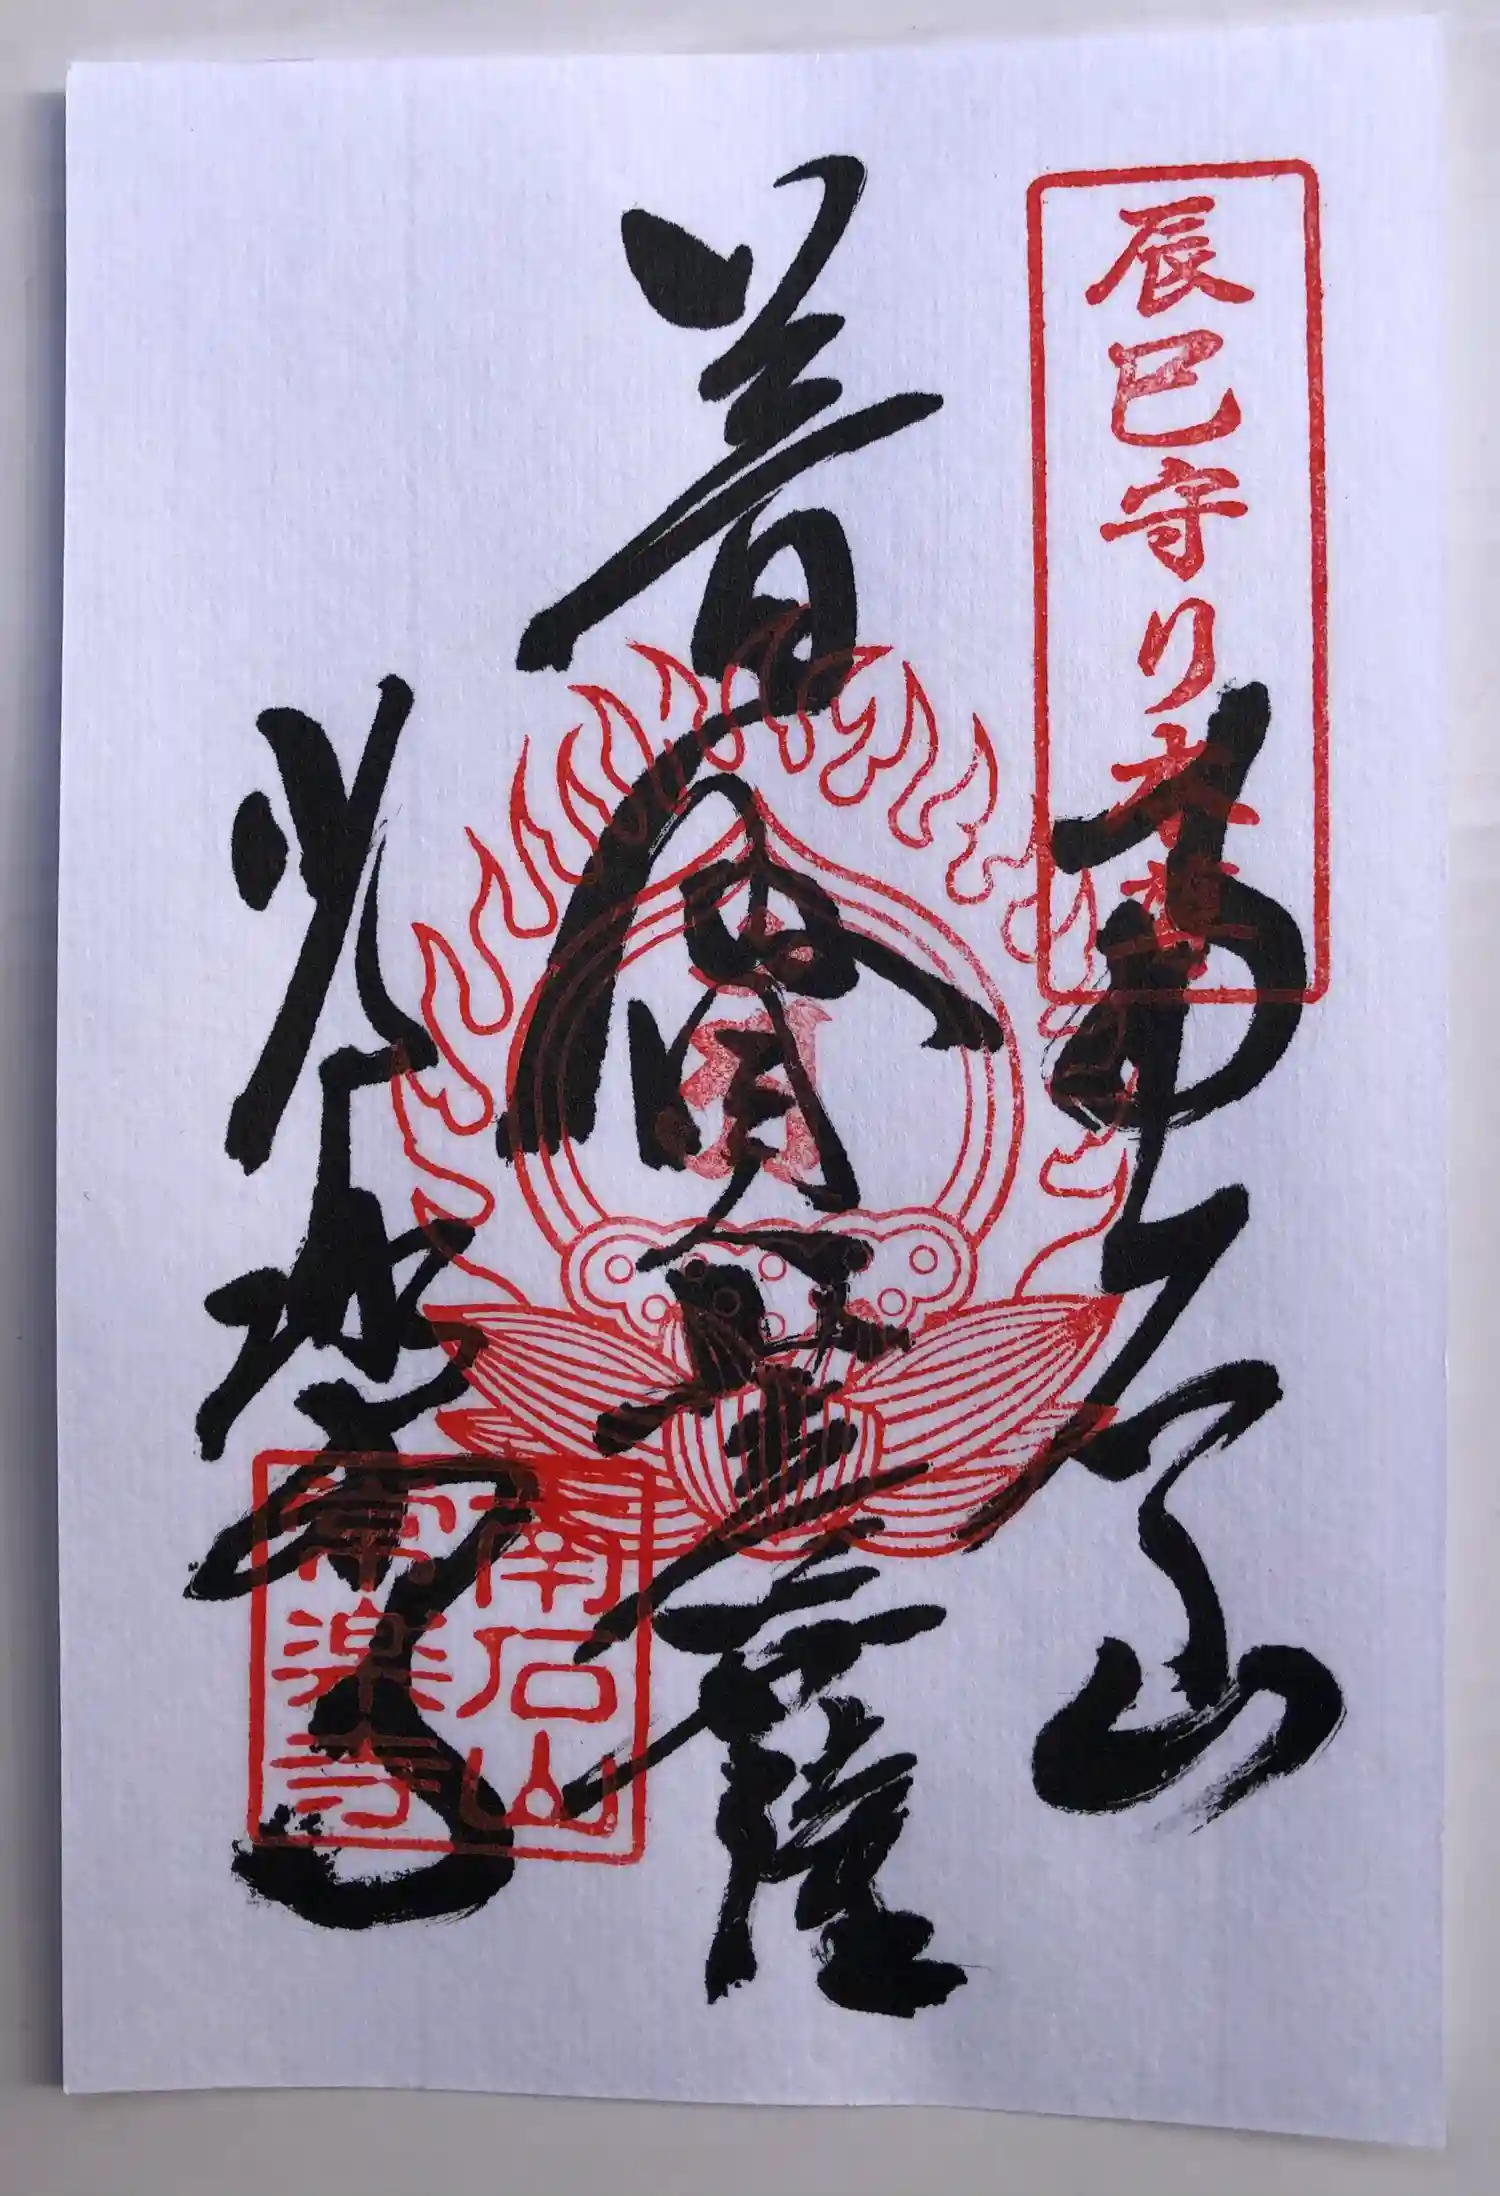 辰巳守り本尊
南石山
普賢菩薩
常楽寺
南石山
常楽寺